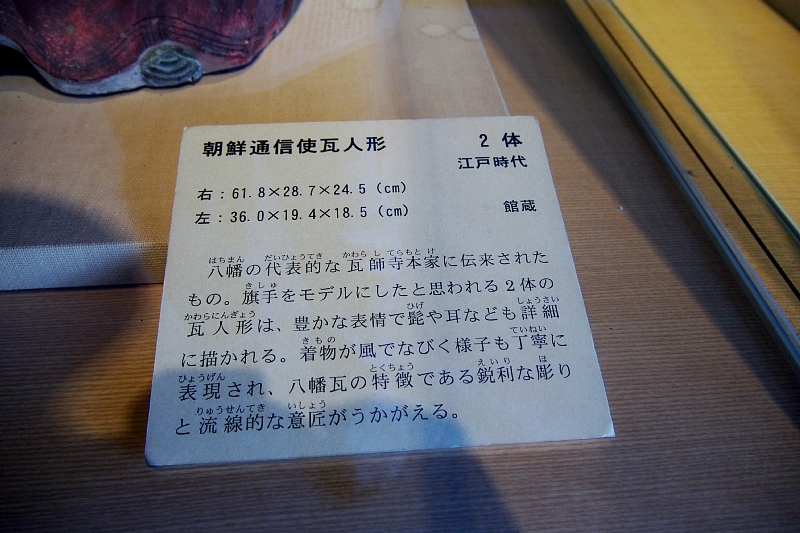 朝鮮通信使瓦人形 2体
江戸時代
右：61.8×28.7×24.5（cm）
左：36.0×19.4×18.5（cm） 館蔵
八幡の代表的な瓦師寺本家に伝来された
もの。旗手をモデルにしたと思われる2体の
瓦人形は、豊かな表情で髭や耳なども詳細
に描かれる。着物が風でなびく様子も丁寧に
表現され、八幡瓦の特徴である鋭利な彫り
と流線的な意匠がうかがえる。